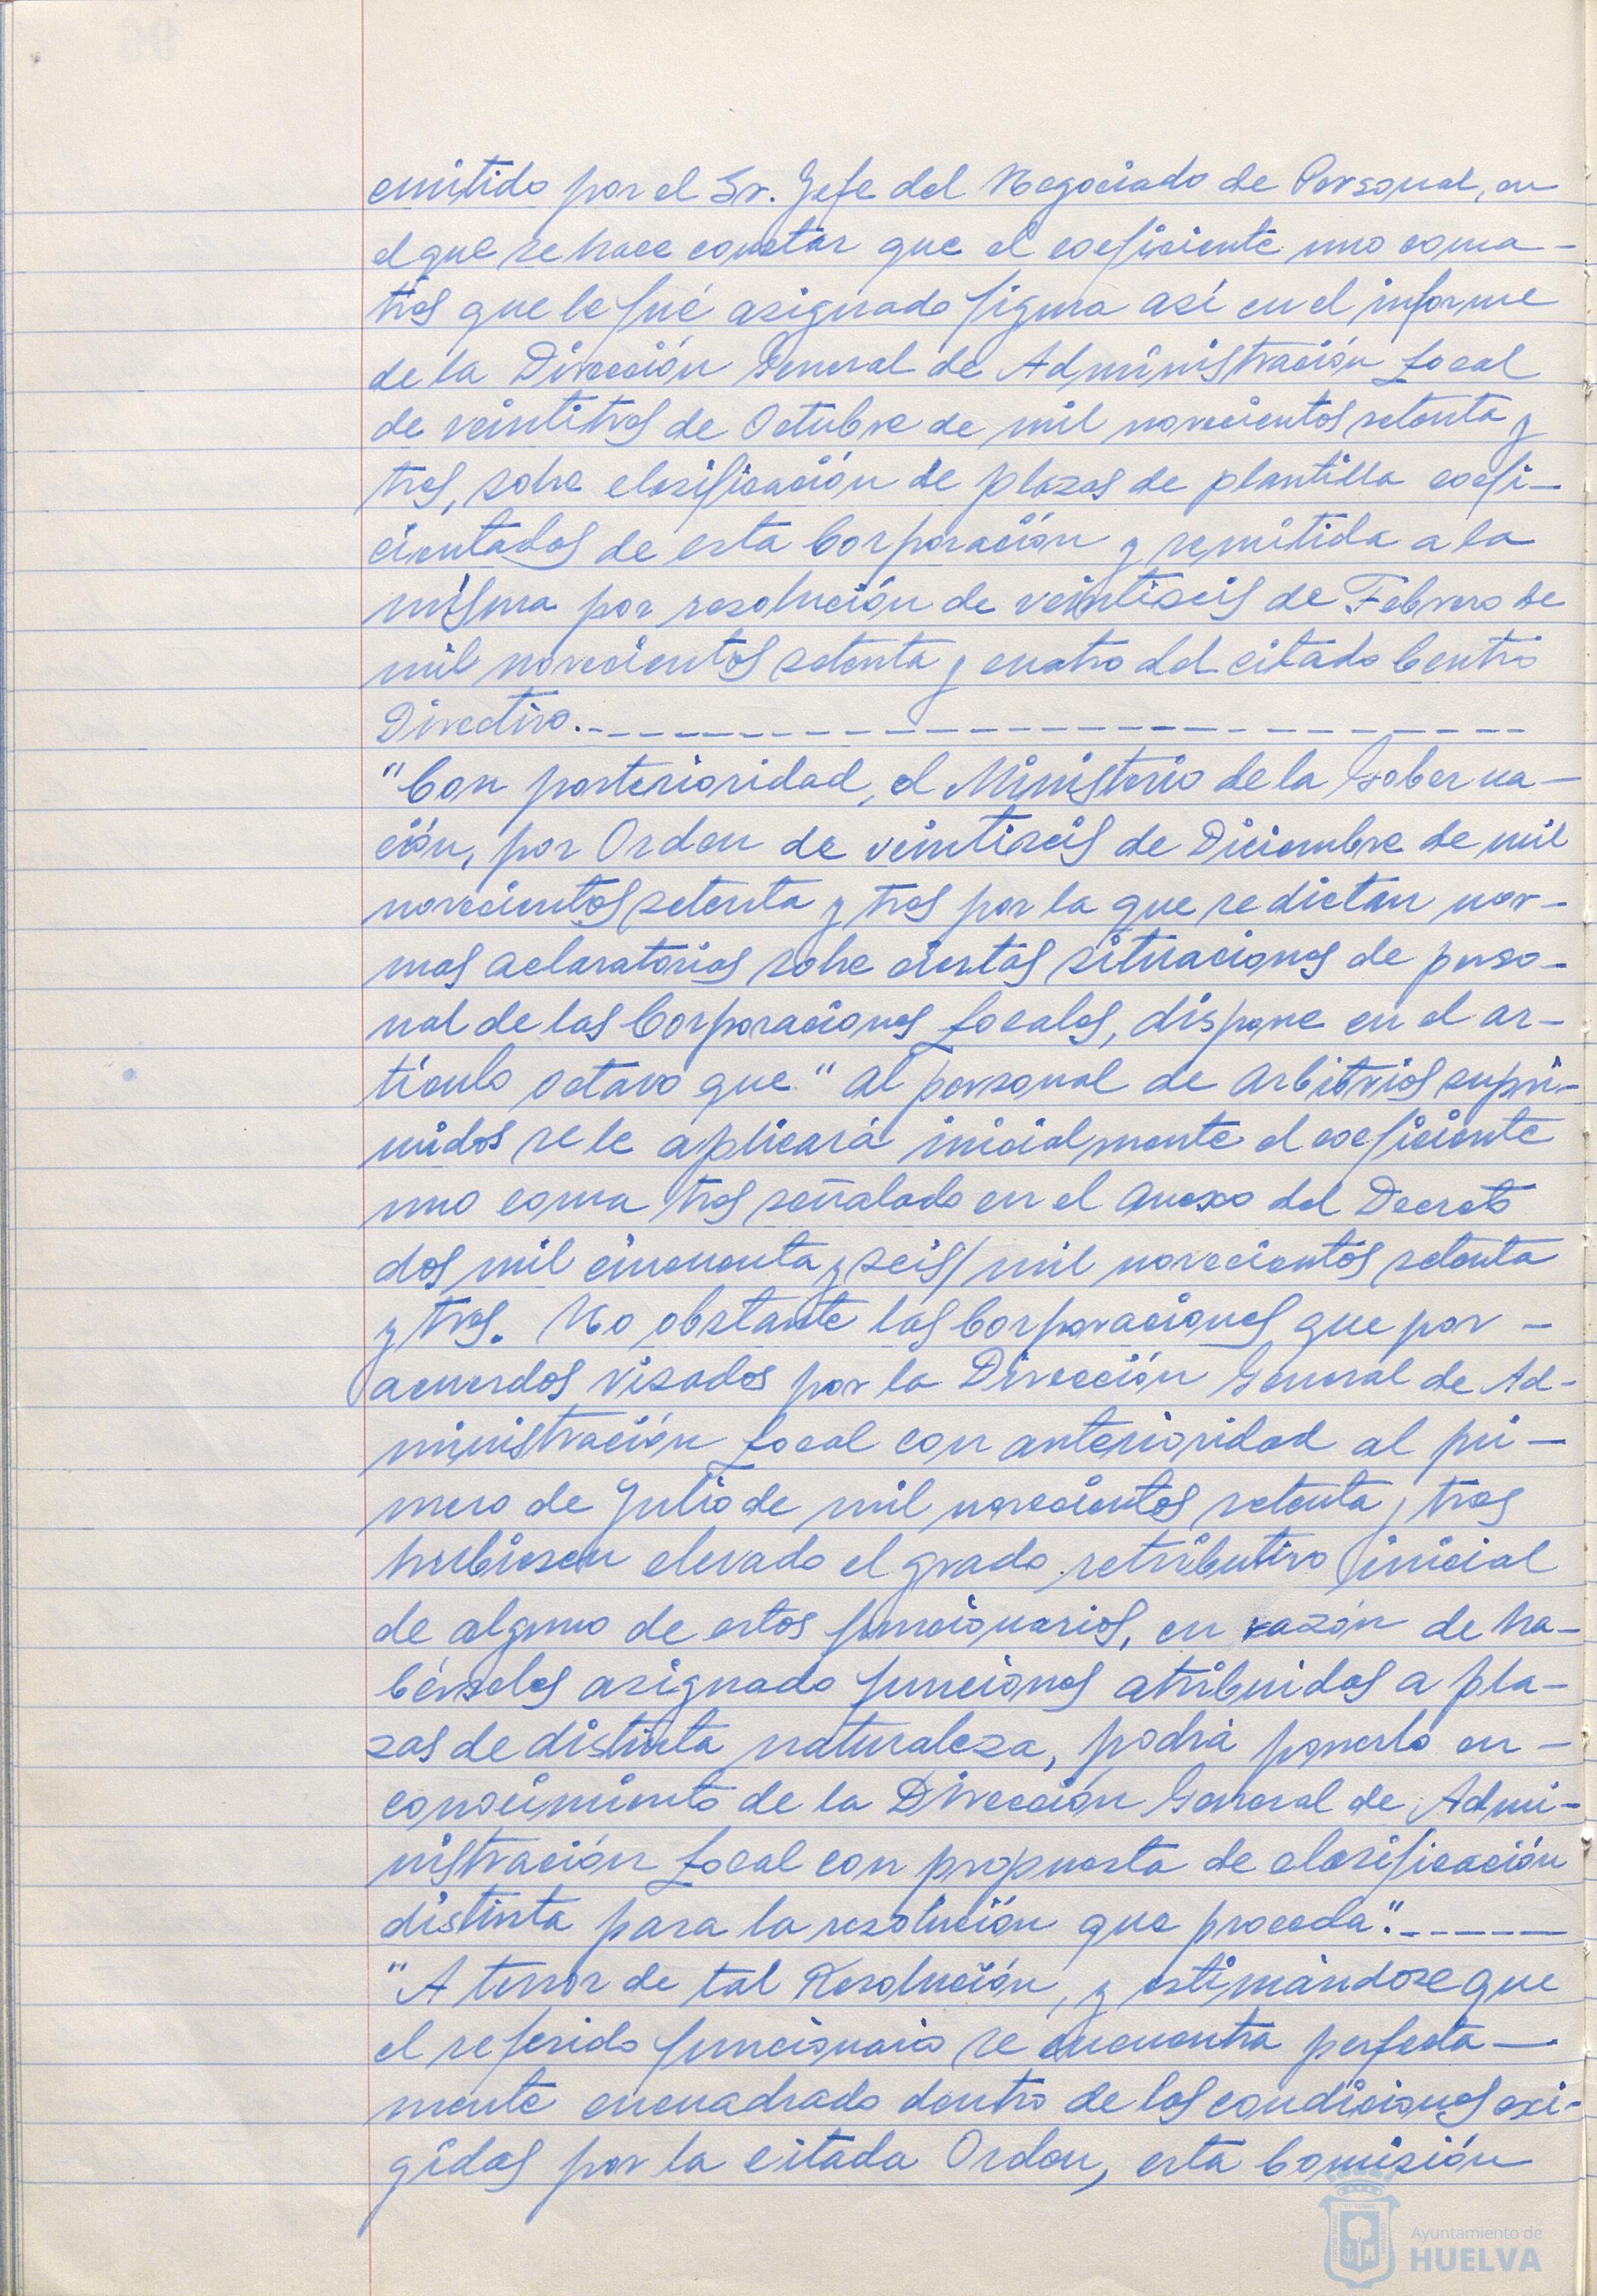 emitido por el Sr. Jefe del Negociado de Personal, en
el que se hace constar que el coeficiente uno coma -
tres que le fué asignado figura así en el informe
de la Dirección General de Administración Local
de veintitres de Octubre de mil novecientos setenta y
tres, sobre clasificación de plazas de plantilla coefi-
cientadas de esta Corporación y remitida a la
misma por resolución de veintiseis de Febrero de
mil novecientos setenta y cuatro del citado Centro
Directivo.-----------------
"Con posterioridad, el Ministerio de la Goberna-
ción, por Orden de veintiseis de Diciembre de mil
novecientos setenta y tres por la que se dictan nor-
mas aclaratorias sobre ciertas situaciones de perso-
nal de las Corporaciones Locales, dispone en el ar-
tículo octavo que "al personal de arbitrios supri-
midos se le aplicará inicialmente el coeficiente
uno coma tres señalado en el anexo del Decreto
dos mil cincuenta y seis/mil novecientos setenta
y tres. No obstante las Corporaciones que por -
acuerdos visados por la Dirección General de Ad-
ministración Local con anterioridad al pri-
mero de Julio de mil novecientos setenta y tres
hubiesen elevado el grado retributivo inicial
de alguno de estos funcionarios, en razón de ha-
bérseles asignado funciones atribuidas a pla-
zas de distinta naturaleza, podrá ponerlo en -
conocimiento de la Dirección General de Admi-
nistración Local con propuesta de clasificación
distinta para la resolución que proceda".------
"A tenor de tal Resolución, y estimándose que
el referido funcionario se encuentra perfecta-
mente encuadrado dentro de las condiciones exi-
gidas por la citada Orden, esta Comisión
Ayuntamiento de
HUELVA